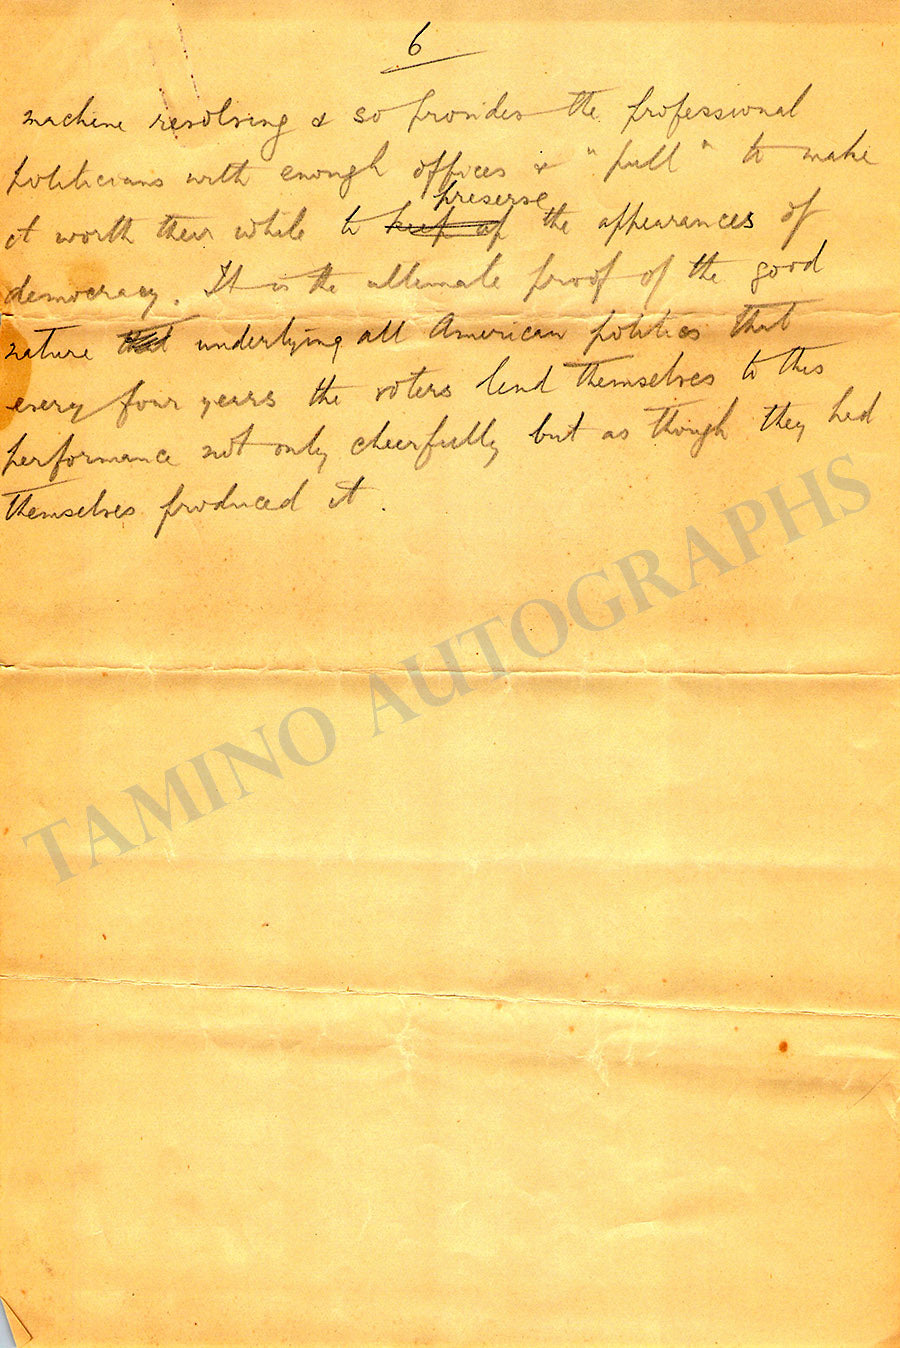 6
machine revolving & so provides the professional
politicians with enough offices & "pull" to make
preserse
it worth their while to keep up the appearances of
democracy. It is the ultimate proof of the good
nature that underlying all American politics that
every four years the voters lend themselves to this
performance not only cheerfully but as though they had
themselves produced it.
TAMINO AUTOGRAPHS